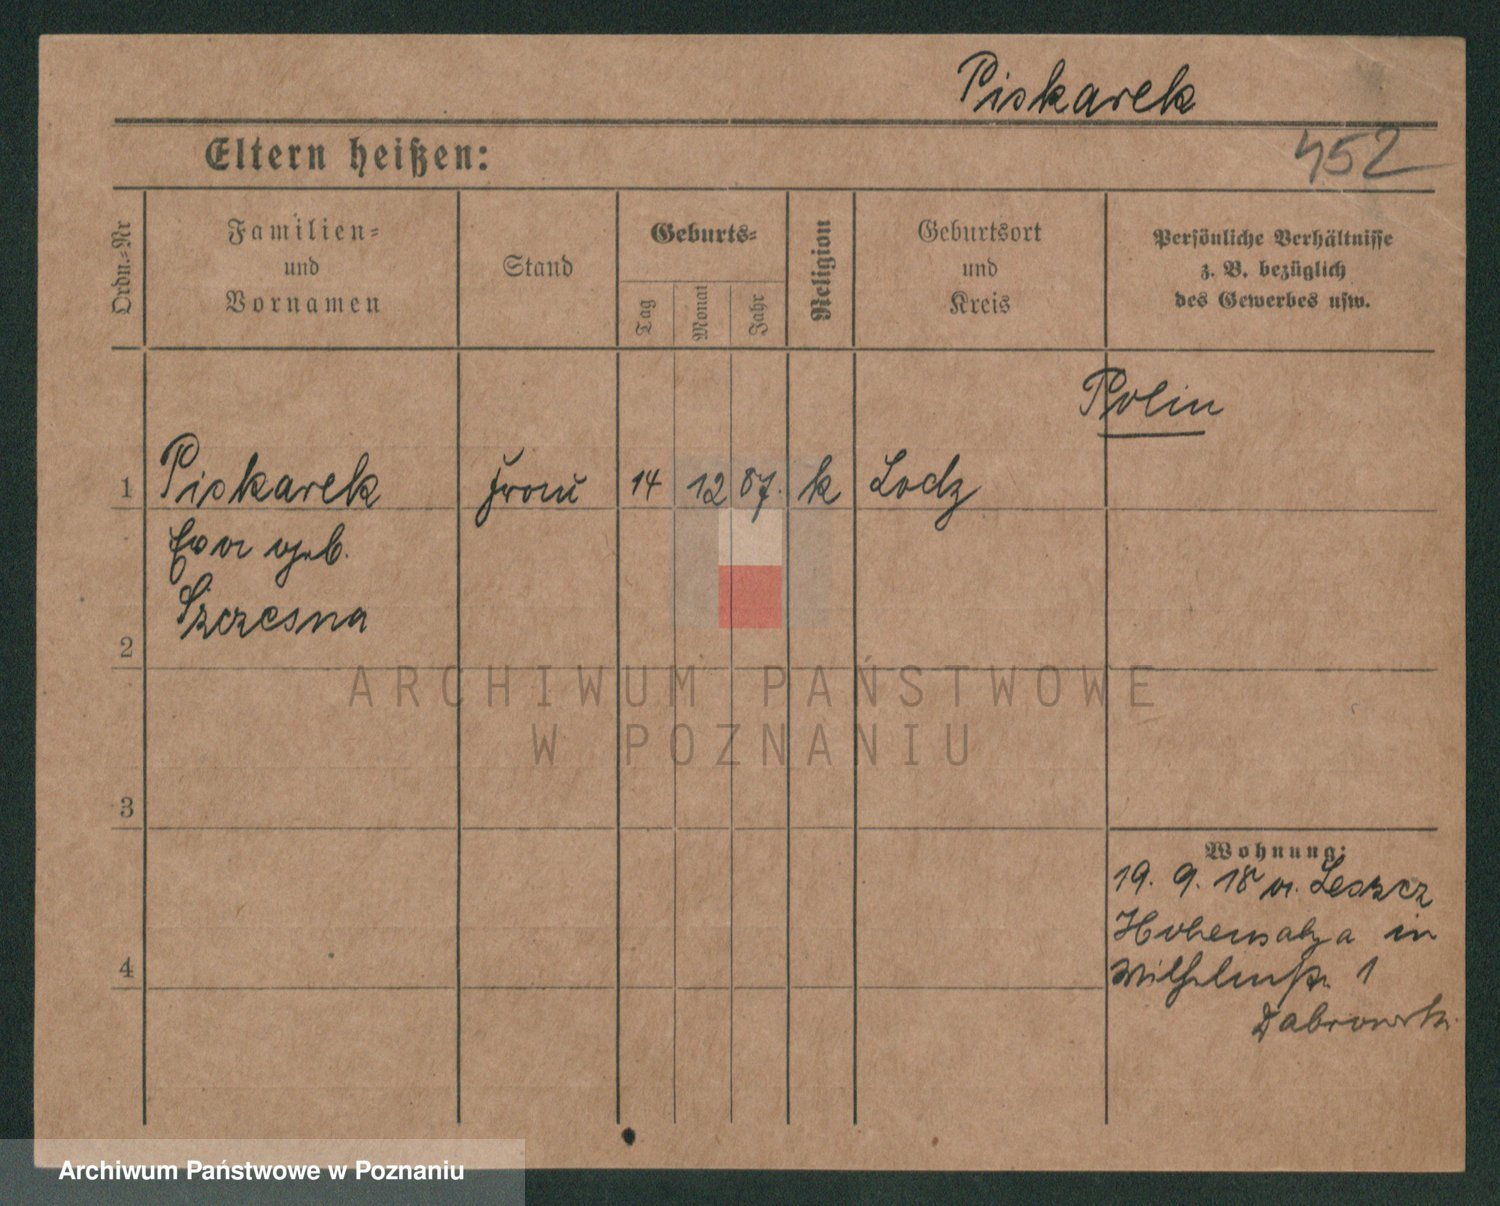 Piskarek
452
Eltern heißen:
Ordn.=Nr
Familien=
und
Vornamen
Stand
Geburts=
Tag
Monat
Jahr
Religion
Geburtsort
und
Kreis
Persönliche Verhältnisse
z. B. bezüglich
des Gewerbes usw.
Polin
1 Piskarek Frau 14 12 87. k Lodz
geb.
Szczesna
2
ARCHIWUM PAŃSTWOWE
W POZNANIU
3
Wohnung:
19. 9. 18 v. Leszcz
Hohensalza in
Wilhelmstr. 1
4
Dabrowsk.
Archiwum Państwowe w Poznaniu